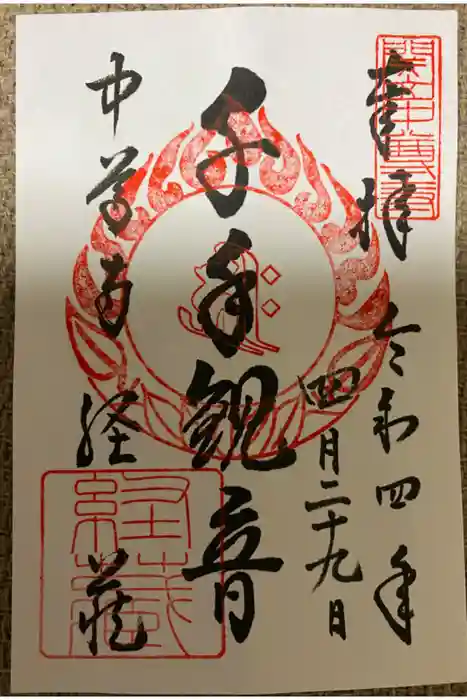 奉拝
令和四年
四月二十九日
千手観音
中尊寺
経蔵
関山中尊寺
経蔵